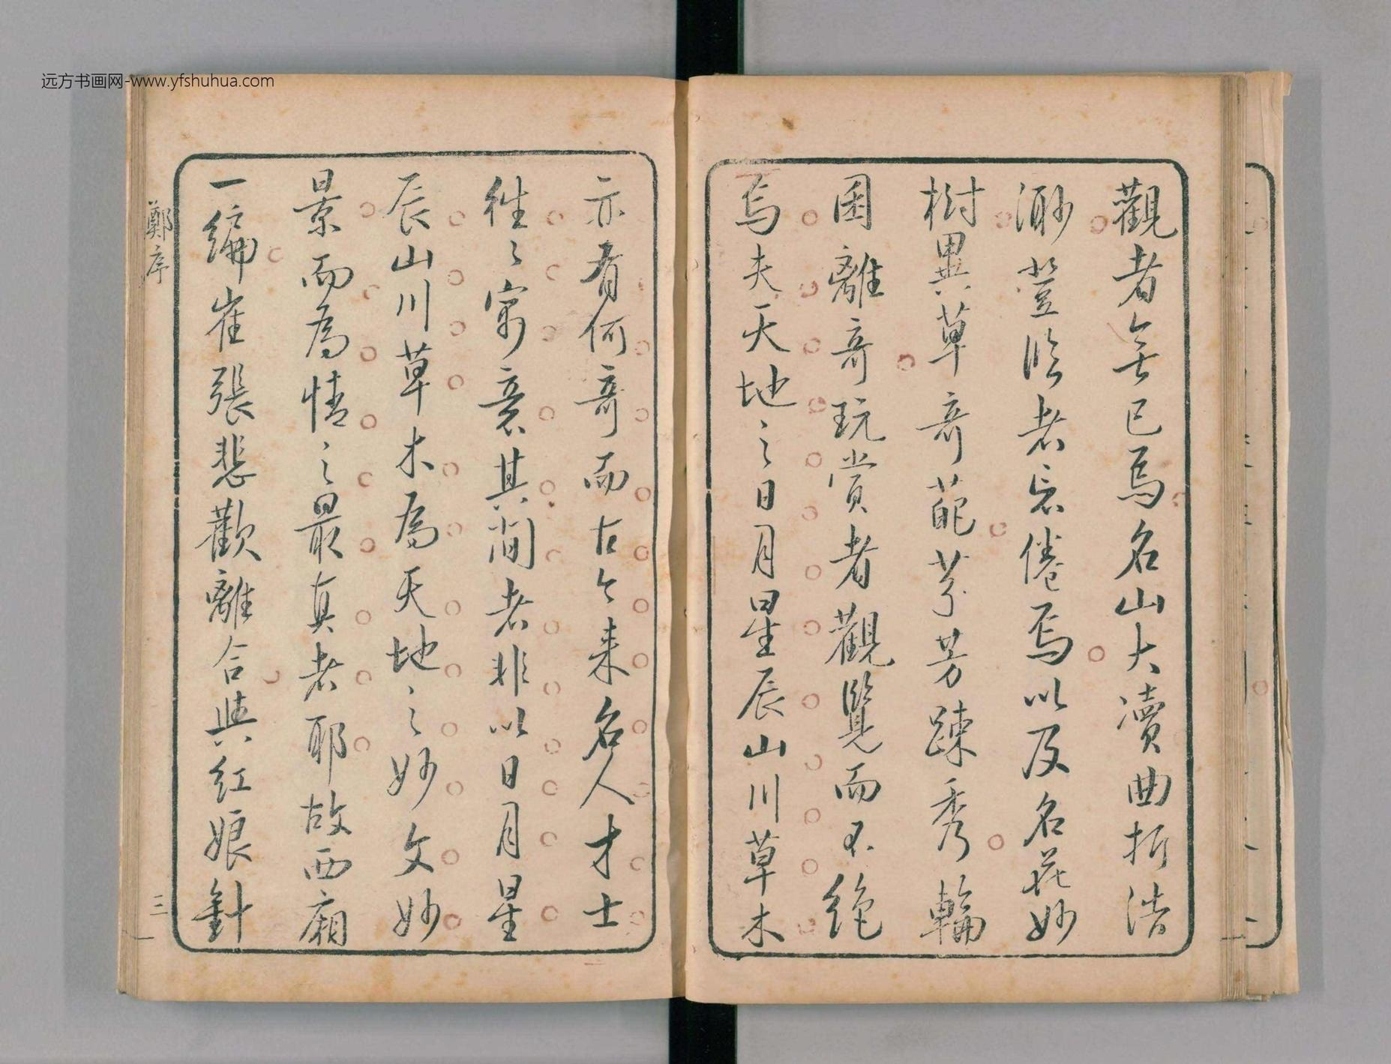 远方书画网-www.yfshuhua.com
觀者無已焉名山大瀆曲折浩
渺登臨者忘倦焉以及名花妙
樹異草奇葩芬芳踈秀輪
囷離奇玩賞者觀覽而不絶
焉夫天地之日月星辰山川草木
亦有何奇而古今来名人才士
徃〻寓意其間者非以日月星
辰山川草木為天地之妙文妙
景而為情之最真者耶故西廂
一編崔張悲歡離合與紅娘針
鄭序
三